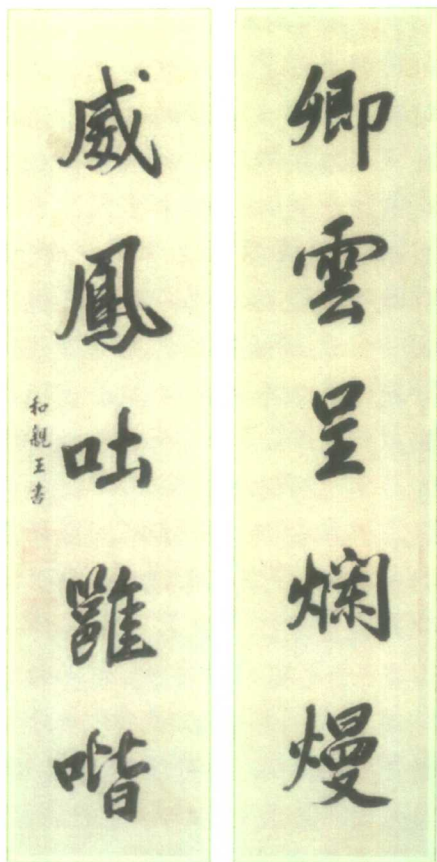 卿雲呈爛熳
威鳳吐雝喈
和親王書